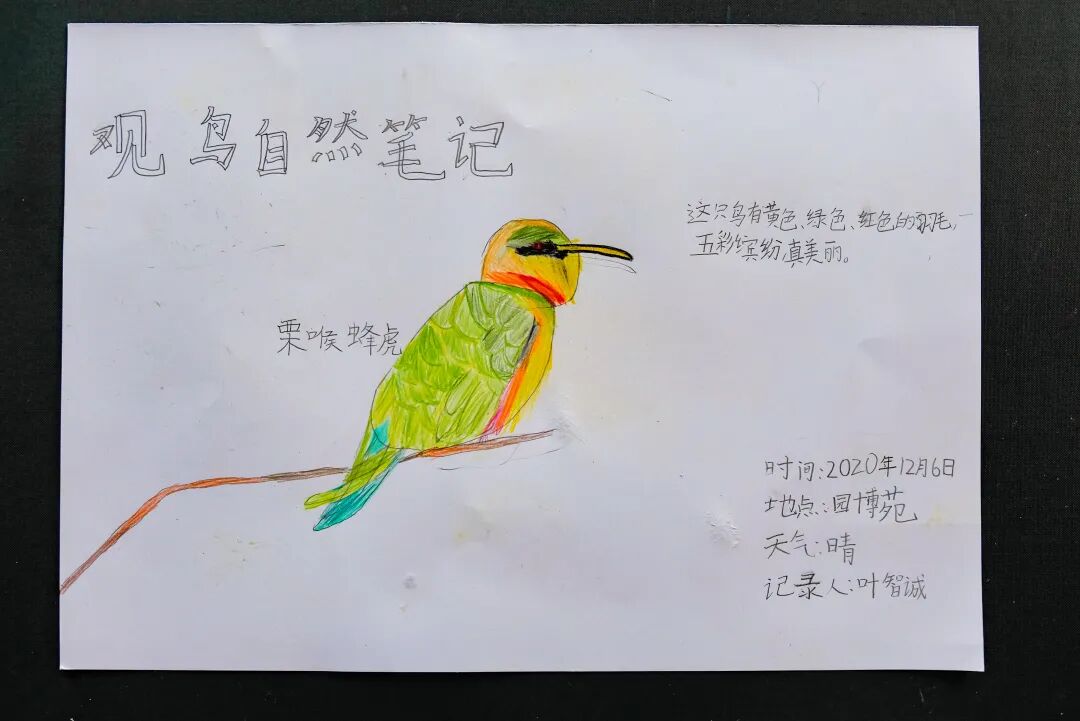 观鸟自然笔记
这只鸟有黄色、绿色、红色的羽毛,
五彩缤纷,真美丽。
栗喉蜂虎
时间:2020年12月6日
地点:园博苑
天气:晴
记录人:叶智诚